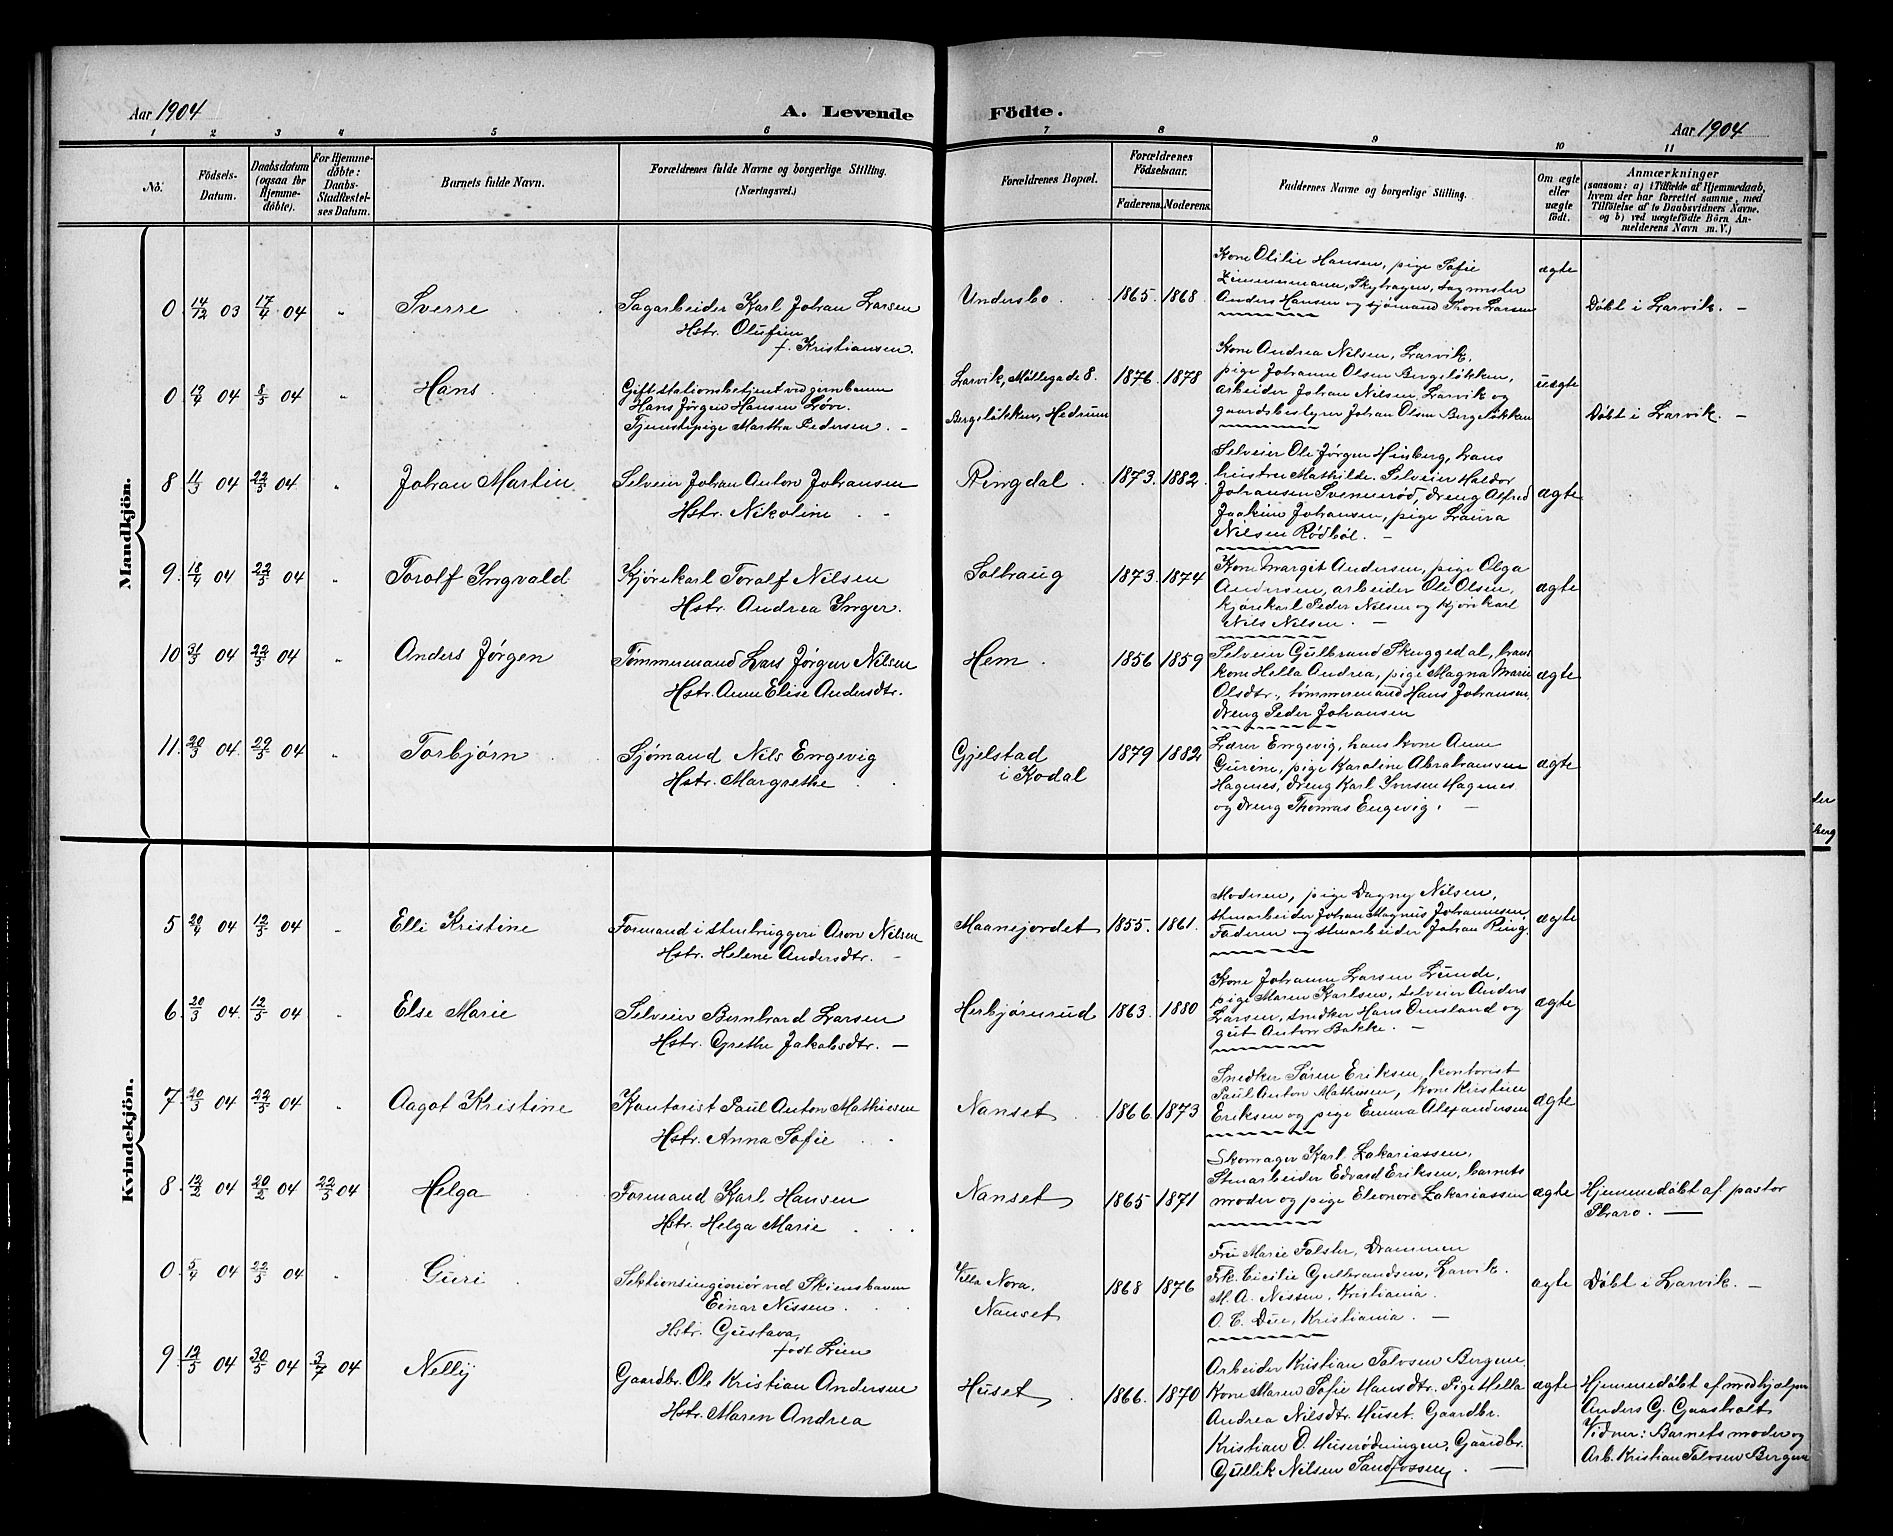 Aar 1904
A. Levende Födte.
Aar 1904
1 2 3 4 5 6 7 8 9 10 11
No. Födsels-Datum. Daabsdatum (ogsaa for Hjemme-døbte). For Hjemme-døbte: Daabs-Stadfæstel-ses Datum. Barnets fulde Navn. Forældrenes fulde Navne og borgerlige Stilling. (Næringsvei.) Forældrenes Bopæl. Forældrenes Födselsaar. Faderens. Moderens. Faddernes Navne og borgerlige Stilling. Om ægte eller uægte födt. Anmærkninger
(saasom: a) i Tilfælde af Hjemmedaab,
hvem der har forrettet samme, med
Tilföielse af to Daabsvidners Navne,
og b) ved uægtefödte Börn An-
melderens Navn m. V.)
Mandkjön.
0 14/12 03 17/4 04 " Sverre Sagarbeider Karl Johan Larsen
Hstr. Olufine
f. Kristiansen.
Undersbo 1865. 1868.
Kone Otilie Hansen, pige Sofie
Zimmermann, Skyhagen, sagmester
Anders Hansen og sjømand Thor Larsen
ægte
Døbt i Larvik. —
0 04 8/5 04 " Hans
Gift stationsbetjent ved jernbanen
Hans Jørgen Hansen
Tjenestepige Martha Pedersen. —
Larvik, Møllegade 8.
Bergeløkken, Hedrum
1876. 1878
Kone Andrea Nilsen, Larvik,
pige Johanne Olsen Bergeløkken,
arbeider Johan Nilsen, Larvik og
gaardsbestyrer Johan Olsen Bergeløkken
uægte
Døbt i Larvik. —
8 11/3 04 22/5 04 " Johan Martin
Selveier Johan Anton Johansen
Hstr. Nikoline
Ringdal 1873. 1882.
Selveier Ole Jørgen Hinberg, hans
hustru Mathilde. Selveier Haldor
Johansen Svennerød, dreng Alfred
Joakim Johansen, pige Laura
Nilsen Rødbøl. —
ægte
9. 18/4 04 22/5 04 " Toralf Yngvald
Kjørekarl Toralf Nilsen
Hstr. Andrea Inger.
Solhaug 1873. 1874
Kone Margit Andersen, pige Olga
Andersen, arbeider Ole Olsen,
kjørekarl Peder Nilsen og kjørekarl
Nils Nilsen. —
ægte
10 31/3 04 22/5 04 " Anders Jørgen
Tømmermand Lars Jørgen Nilsen
Hstr. Anne Elise Andersdtr.
Hem. 1856 1859
Selveier Gulbrand Skuggedal, hans
kone Hella Andrea, pige Magna Marie
Olsdtr., tømmermand Hans Johansen,
dreng Peder Johansen
ægte
11. 20/3 04. 29/5 04 " Torbjørn
Sjømand Nils Engevig
Hstr. Margrethe
Gjelstad
i Kodal
1879 1882
Lærer Engevig, hans kone Anne
Gurine, pige Karoline Abrahamsen
Hagnes, dreng Karl Iversen Hagnes
og dreng Thomas Engevig. —
ægte
Kvindekjön.
5 04 12/5 04 " Elli Kristine
Formand i stenbruggeri Aron Nilsen
Hstr. Helene Andersdtr. —
Maanejordet 1855. 1861.
Moderen, pige Dagny Nilsen,
stenarbeider Johan Magnus Johannesen
Faderen og stenarbeider Johan Ring.
ægte
6. 20/3 04. 12/5 04 " Else Marie
Selveier Bernhard Larsen
Hstr. Grethe Jakobsdtr. —
Herbjørnrud 1863. 1880
Kone Johanne Larsen Lunde,
pige Maren Karlsen, selveier Anders
Larsen, snedker Hans Omsland og
gut Anton Bakke. —
ægte
7 20/3 04 22/5 04 " Aagot Kristine
Kontorist Paul Anton Mathiesen
Hstr. Anna Sofie
Nanset 1866. 1873
Snedker Søren Eriksen, kontorist
Paul Anton Mathisen, kone Kristine
Eriksen og pige Emma Alexandersen
ægte
8. 12/2 04 20/2 04 22/5 04 Helga
Formand Karl Hansen
Hstr. Helga Marie
Nanset 1865 1871
Skomager Karl Zakariassen,
Stenarbeider Edvard Eriksen, barnets
moder og pige Eleonore Zakariassen
ægte
Hjemmedøbt af pastor
—
0. 5/4 04 22/5 04 " Guri
Sektionsingeniør ved Skiensbanen
Einar Nissen
Hstr. Gustava,
født Lien
Villa Nora,
Nanset
1868 1876
Fru Marie Falster, Drammen
Frk. Cicilie Gulbrandsen, Larvik.
M. A. Nissen, Kristiania.
O. C. Due, Kristiania. —
ægte
Døbt i Larvik. —
9 12/5 04 30/5 04 3/7 04 Nelly
Gaardbr. Ole Kristian Andersen
Hstr. Maren Andrea
Huset 1866. 1870
Arbeider Kristian Talosen Bergene
Kone Maren Sofie Hansdtr. Pige Hella
Andrea Nilsdtr. Huset. Gaardbr.
Kristian O. Huserødningen, Gaardbr.
Gullik Nilsen Sandfossen. —
ægte
Hjemmedøbt af medhjælper
Anders G. Gaasholt
Vidner: Barnets moder og
Arb. Kristian Talosen Bergene